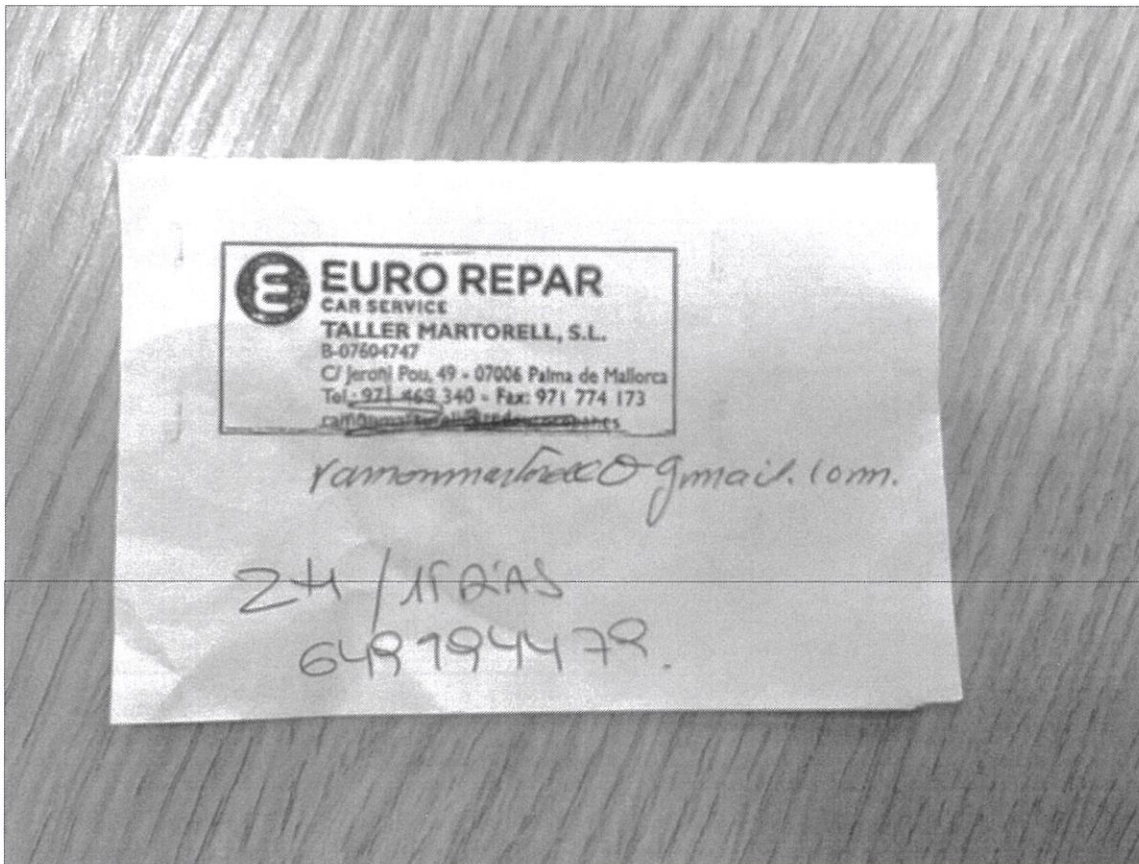 EURO REPAR
CAR SERVICE
TALLER MARTORELL, S.L.
B-07604747
C/ Jeroni Pou, 49 - 07006 Palma de Mallorca
Tel.: 971 469 340 - Fax: 971 774 173
ramonmartorell@gmail.com.
2H / 15 DÍAS